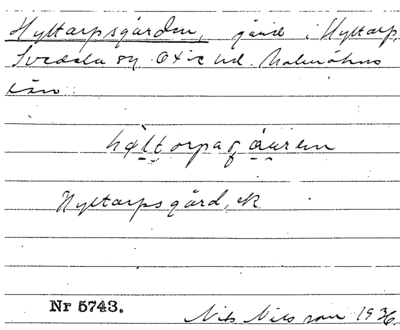 Hyltarpsgården, gård i Hyltarp,
Svedala sn Oxie hd. Malmöhus
län
hyltorpagåuren
Hyltarpsgård, ek
Nr 5743. Nils Nilsson 1936.